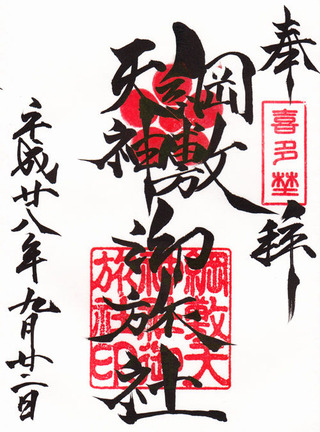 奉拝
喜多埜
綱敷
天神
御旅社
綱敷天
神社御
旅社印
平成廿八年九月廿二日